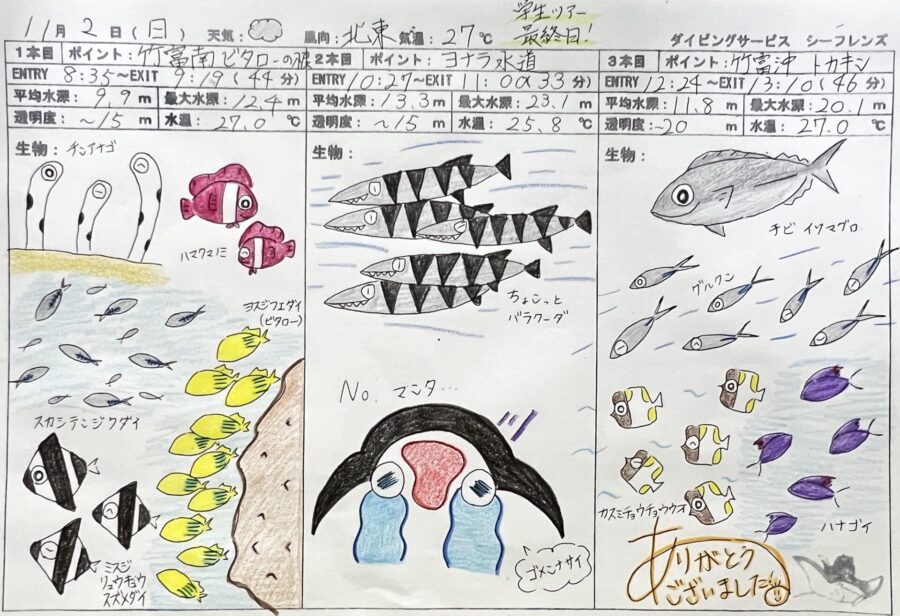 11月2日(日) 天気: 風向: 北東 気温: 27℃
学生ツアー
最終日!
ダイビングサービス シーフレンズ
1本目 ポイント: 竹富南ビタローの根
ENTRY 8:35~EXIT 9:19(44分)
平均水深: 9.9m 最大水深: 12.4m
透明度: ~15m 水温: 27.0℃
生物: チンアナゴ
ハマクマノミ
ヨスジフエダイ
(ビタロー)
スカシテンジクダイ
ミスジ
リュウキュウ
スズメダイ
2本目 ポイント: ヨナラ水道
ENTRY 10:27~EXIT 11:00(33分)
平均水深: 13.3m 最大水深: 23.1m
透明度: ~15m 水温: 25.8℃
生物:
ちょこっと
バラクーダ
No, マンタ…
ゴメンナサイ
3本目 ポイント: 竹富沖 トカキン
ENTRY 12:24~EXIT 13:10(46分)
平均水深: 11.8m 最大水深: 20.1m
透明度: ~20m 水温: 27.0℃
生物:
チビ イソマグロ
グルクン
カスミチョウチョウウオ
ハナゴイ
ありがとう
ございました